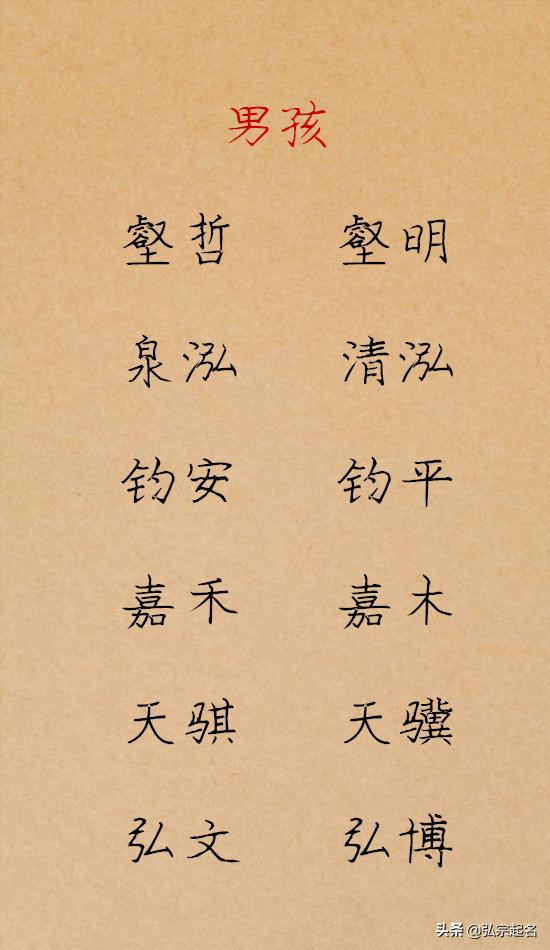 男孩
壑哲 壑明
泉泓 清泓
钧安 钧平
嘉禾 嘉木
天骐 天骥
弘文 弘博
头条 @弘宗起名